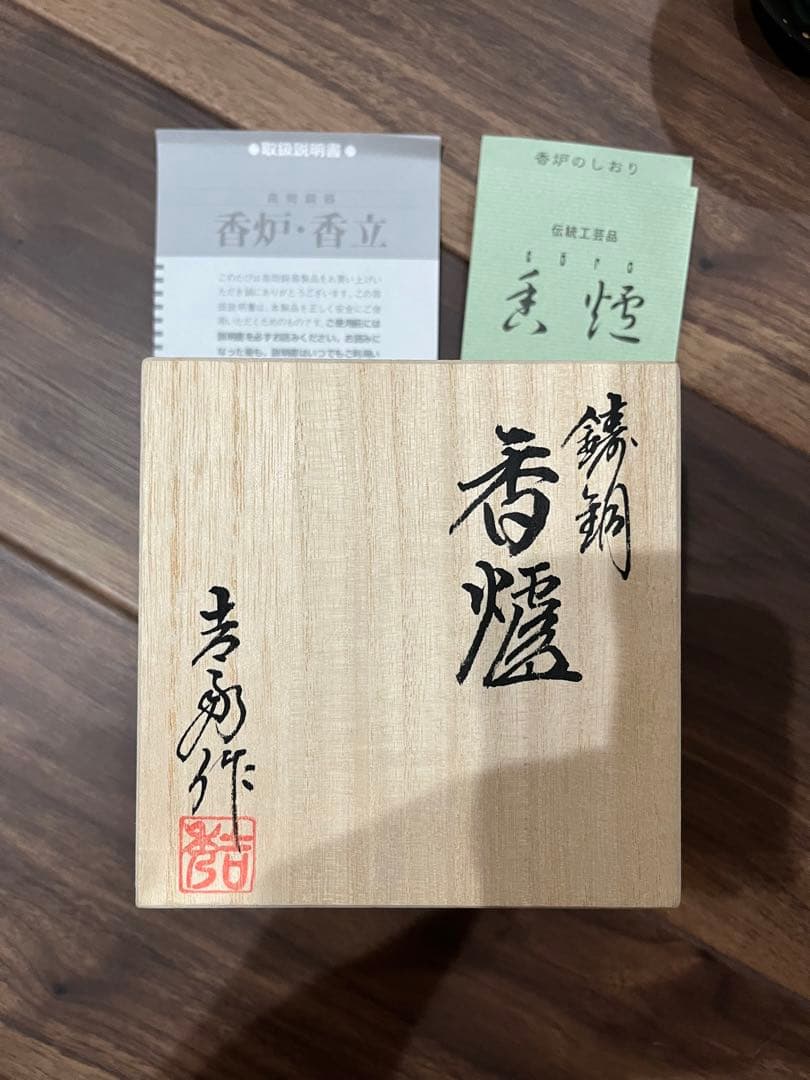 ●取扱説明書●
高岡銅器
香炉・香立
このたびは高岡銅器製品をお買い上げい
ただき誠にありがとうございます。この取
扱説明書は、本製品を正しく安全にご使
用いただくためのものです。ご使用前には
説明書を必ずお読みください。お読みに
なった後も、説明書はいつでもご利用い
香炉のしおり
伝統工芸品
kōro
香爐
鋳銅
香爐
吉秀作
吉秀